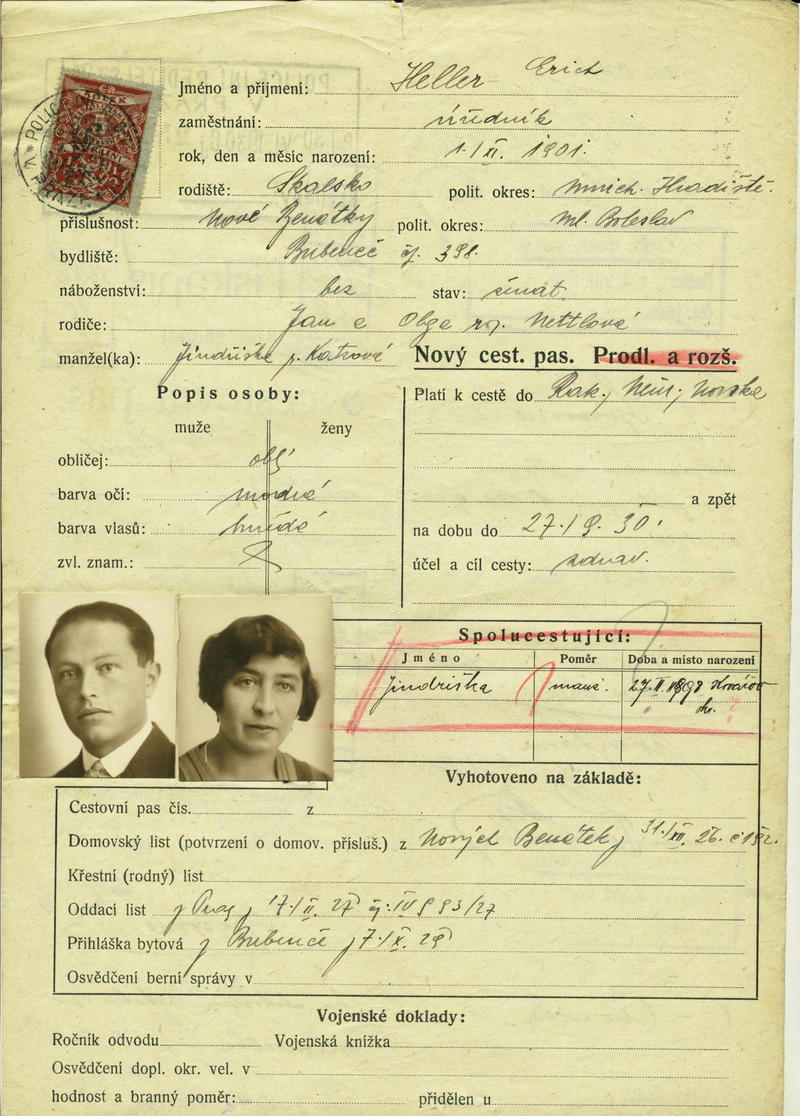 Jméno a příjmení: Heller Erich
zaměstnání: úředník
rok, den a měsíc narození: 1./XI. 1901.
rodiště: Skalsko polit. okres: Mnich. Hradiště.
příslušnost: Nové Benátky polit. okres: Ml. Boleslav
bydliště: Bubeneč čj. 398.
náboženství: bez stav: ženat
rodiče: Jan a Olga roz. Nettlová
manžel(ka): Jindřiška r. Katzová
Nový cest. pas. Prodl. a rozš.
Popis osoby:
muže ženy
obličej: oblý
barva očí: modré
barva vlasů: hnědé
zvl. znam.:
Platí k cestě do Rak., Něm., Norska
a zpět
na dobu do 27./9. 30.
účel a cíl cesty: zdrav.
Spolucestující:
Jméno Poměr Doba a místo narození
Jindřiška manž. 27. II. 1898
Vyhotoveno na základě:
Cestovní pas čís. z
Domovský list (potvrzení o domov. přísluš.) z Nových Benátek, 31./XII. 26.
Křestní (rodný) list
Oddací list 17./II. 27
Přihláška bytová z Bubenče
Osvědčení berní správy v
Vojenské doklady:
Ročník odvodu Vojenská knížka
Osvědčení dopl. okr. vel. v
hodnost a branný poměr: přidělen u